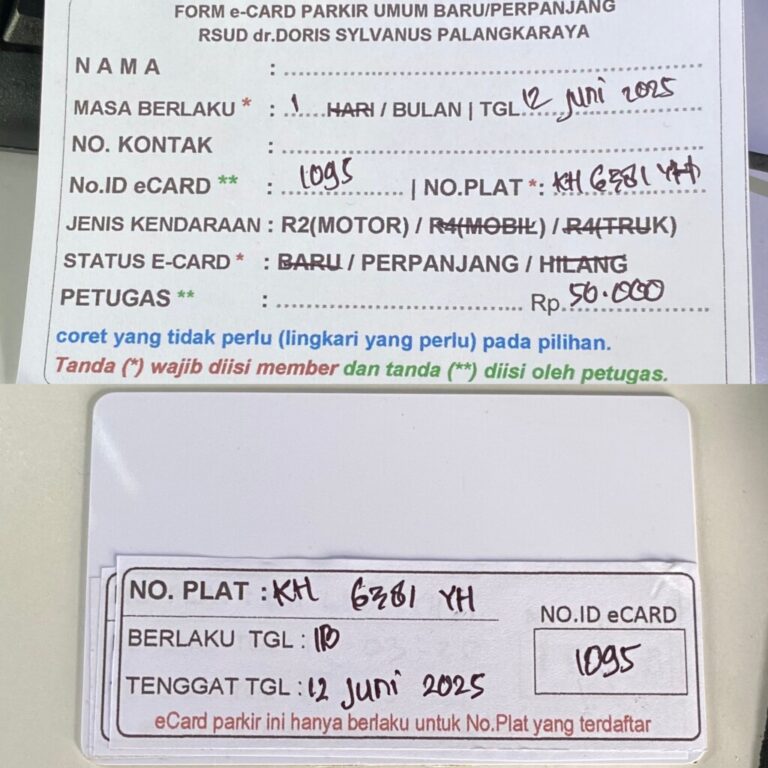 FORM e-CARD PARKIR UMUM BARU/PERPANJANG
RSUD dr.DORIS SYLVANUS PALANGKARAYA
NAMA :
MASA BERLAKU * : 1 HARI / BULAN | TGL. 12 Juni 2025
NO. KONTAK :
No.ID eCARD ** : 1095 | NO.PLAT *: KH 6381 YH
JENIS KENDARAAN : R2(MOTOR) / R4(MOBIL) / R4(TRUK)
STATUS E-CARD * : BARU / PERPANJANG / HILANG
PETUGAS ** : Rp. 50.000
coret yang tidak perlu (lingkari yang perlu) pada pilihan.
Tanda (*) wajib diisi member dan tanda (**) diisi oleh petugas.
NO. PLAT : KH 6381 YH
NO.ID eCARD
BERLAKU TGL : 1B
1095
TENGGAT TGL : 12 Juni 2025
eCard parkir ini hanya berlaku untuk No.Plat yang terdaftar